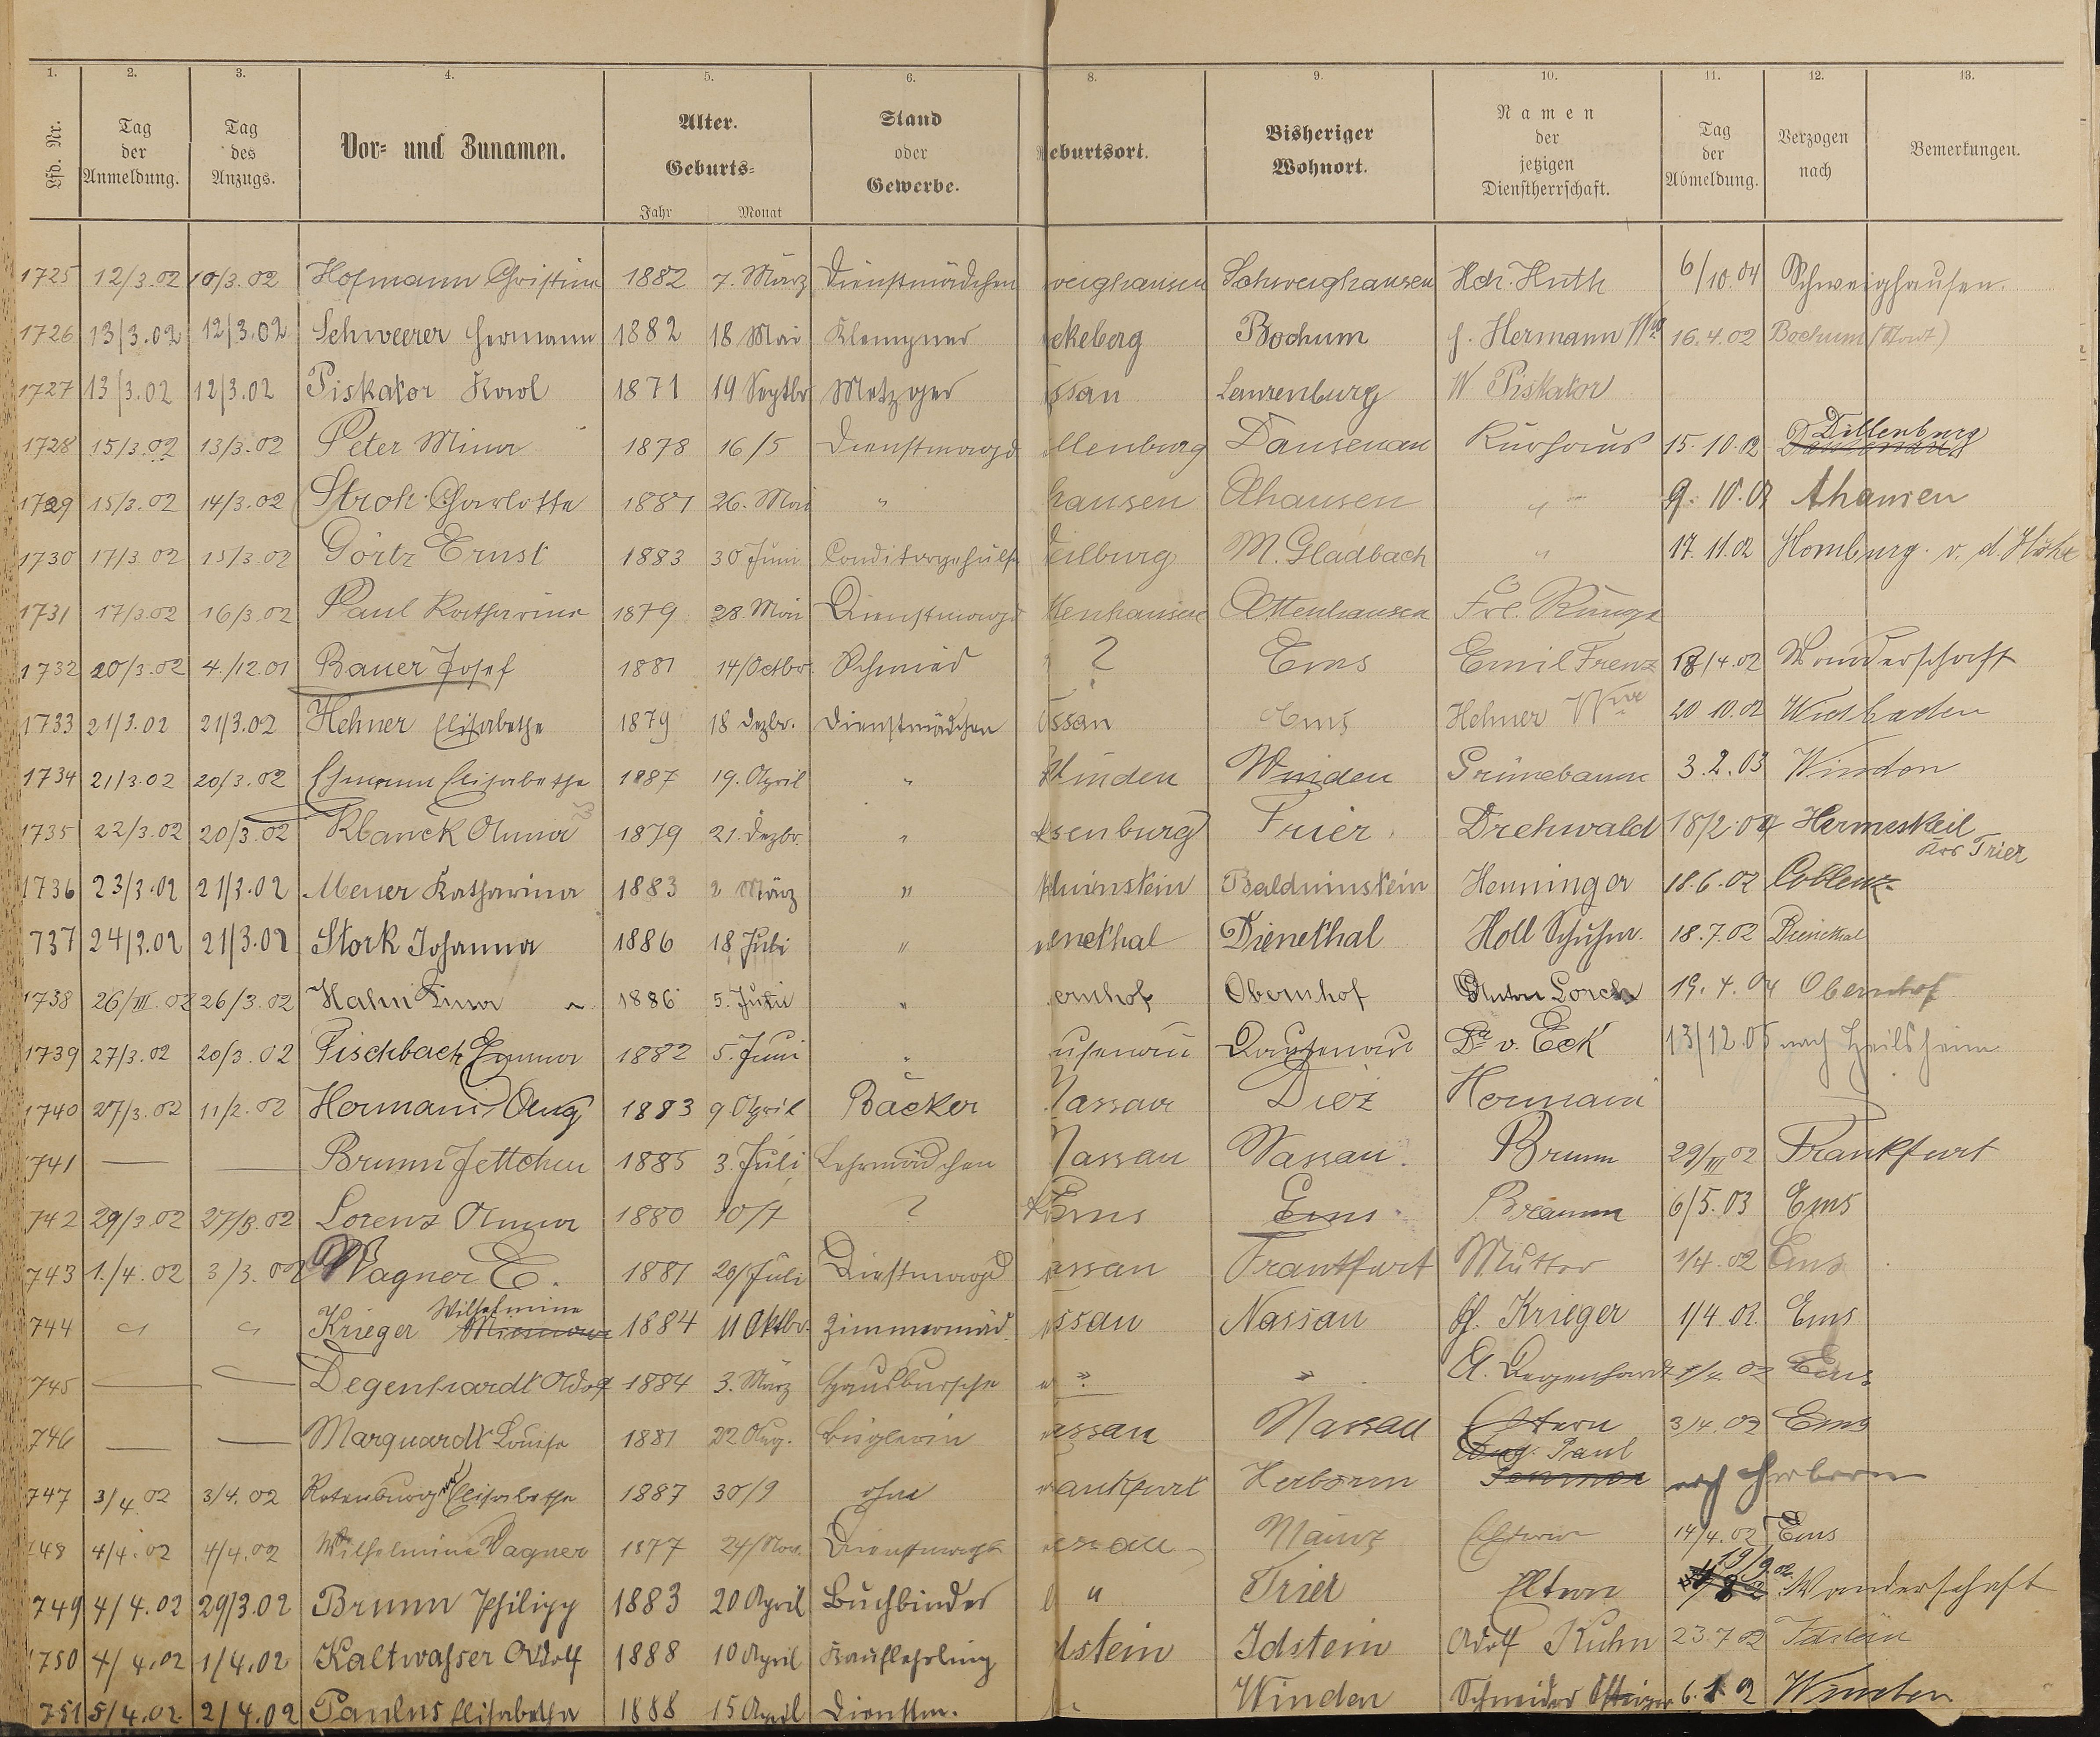 1. 2. 3. 4. 5. 6. 8. 9. 10. 11. 12. 13.
Lfd. Nr. Tag der Anmeldung. Tag des Anzugs. Vor- und Zunamen. Alter. Geburts- Jahr Monat Stand oder Gewerbe. eburtsort. Bisheriger Wohnort. Namen der jetzigen Dienstherrschaft. Tag der Abmeldung. Verzogen nach Bemerkungen.
1725 12/3.02 10/3.02 Hofmann Christine 1882 7. März Dienstmädchen weighausen Schweighausen Hch. Huth 6/10.04 Schweighausen.
1726 13/3.02 12/3.02 Schweerer Hermann 1882 18 Mai Klempner ckeberg Bochum J. Hermann Wwe 16.4.02 Bochum
1727 13/3.02 12/3.02 Piskator Karl 1871 19 Septbr Metzger ssau Laurenburg W. Piskator
1728 15/3.02 13/3.02 Peter Mina 1878 16/5 Dienstmagd illenburg Dausenau Kurhaus 15.10.02 Dillenburg
1729 15/3.02 14/3.02 Stroh Charlotte 1887 26. Mai " hausen Ahausen " 9.10.02 Ahausen
1730 17/3 02 15/3.02 Görtz Ernst 1883 30 Juni Conditorgehülfe eilburg M. Gladbach " 17.11.02 Homburg v. d. Höhe
1731 17/3.02 16/3.02 Paul Katharine 1879 28. Mai Dienstmagd ttenhausen Attenhausen Frl. Runge
1732 20/3.02 4./12.01 Bauer Josef 1881 14/Octbr. Schmied ? Ems Emil Frenz 18/4.02 Wanderschaft
1733 21/3.02 21/3.02 Hehner Elisabethe 1879 18 Dezbr. Dienstmädchen assau Ems Hehner Wwe 20 10.02 Wiesbaden
1734 21/3.02 20/3.02 Elisabethe 1887 19. April " Winden Winden Grünebaum 3.2.03 Winden
1735 22/3.02 20/3.02 Klauck Anna 1879 21. Dezbr. " senburg Trier Drehwald 18/2.04 Hermeskeil Krs Trier
1736 23/3.02 21/3.02 Meuer Katharina 1883 2 März " duinstein Balduinstein Henninger 18.6.02 Coblenz
737 24/3.02 21/3.02 Stork Johanna 1886 18 Juli " enethal Dienethal Holl Schuhm. 18.7.02 Dienethal
1738 26/III.02 26/3.02 Hahn Lina 1886 5. Juni " ernhof Obernhof Anton Lorch 19.4.04 Obernhof
1739 27/3.02 20/3.02 Fischbach Emma 1882 5. Juni " usenau Dausenau Dr v. Eck 13/12.05 nach Heilsheim
1740 27/3.02 11/2.02 Hermani Aug 1883 9 April Bäcker Nassau Diez Hermani
1741 — — Brunn Jettchen 1885 3. Juli Lehrmädchen Nassau Nassau. Brunn 29/III 02 Frankfurt
742 29/3.02 27/3.02 Lorenz Anna 1880 10/7 ? Ems Ems Braun 6/5.03 Ems
743 1./4.02 3/3.02 Wagner E. 1881 20/Juli Dienstmagd assau Frankfurt Mutter 1/4.02 Ems
744 " " Krieger Wilhelmine 1884 11 Oktbr. Zimmermäd. assau Nassau Krieger 1/4 02. Ems
745 — — Degenhardt Adolf 1884 3. März Hausbursche " " A. Degenhardt 1/4. 02 Ems
746 — — Marquardt Louise 1881 22 Aug. Büglerin assau Nassau Eltern 3/4.02 Ems
747 3/4 02 3/4.02 Rotenburg Elisabethe 1887 30/9 ohne ankfurt Herborn Aug. Paul nach Herborn
748 4/4.02 4/4.02 Wilhelmine Wagner 1877 24/Nov. Dienstmagd assau Mainz Eltern 14/4.02 Ems
749 4/4.02 29/3.02 Brunn Philipp 1883 20 April Buchbinder " Trier Eltern 19/9 02. Wanderschaft
1750 4/4.02 1/4.02 Kaltwasser Adolf 1888 10 April Kauflehrling dstein Idstein Adolf Kuhn 23.7 02 Idstein
751 5/4.02 2/4.02 Paulus Elisabetha 1888 15 April Dienstm. Winden Schneider 6. 02 Winden